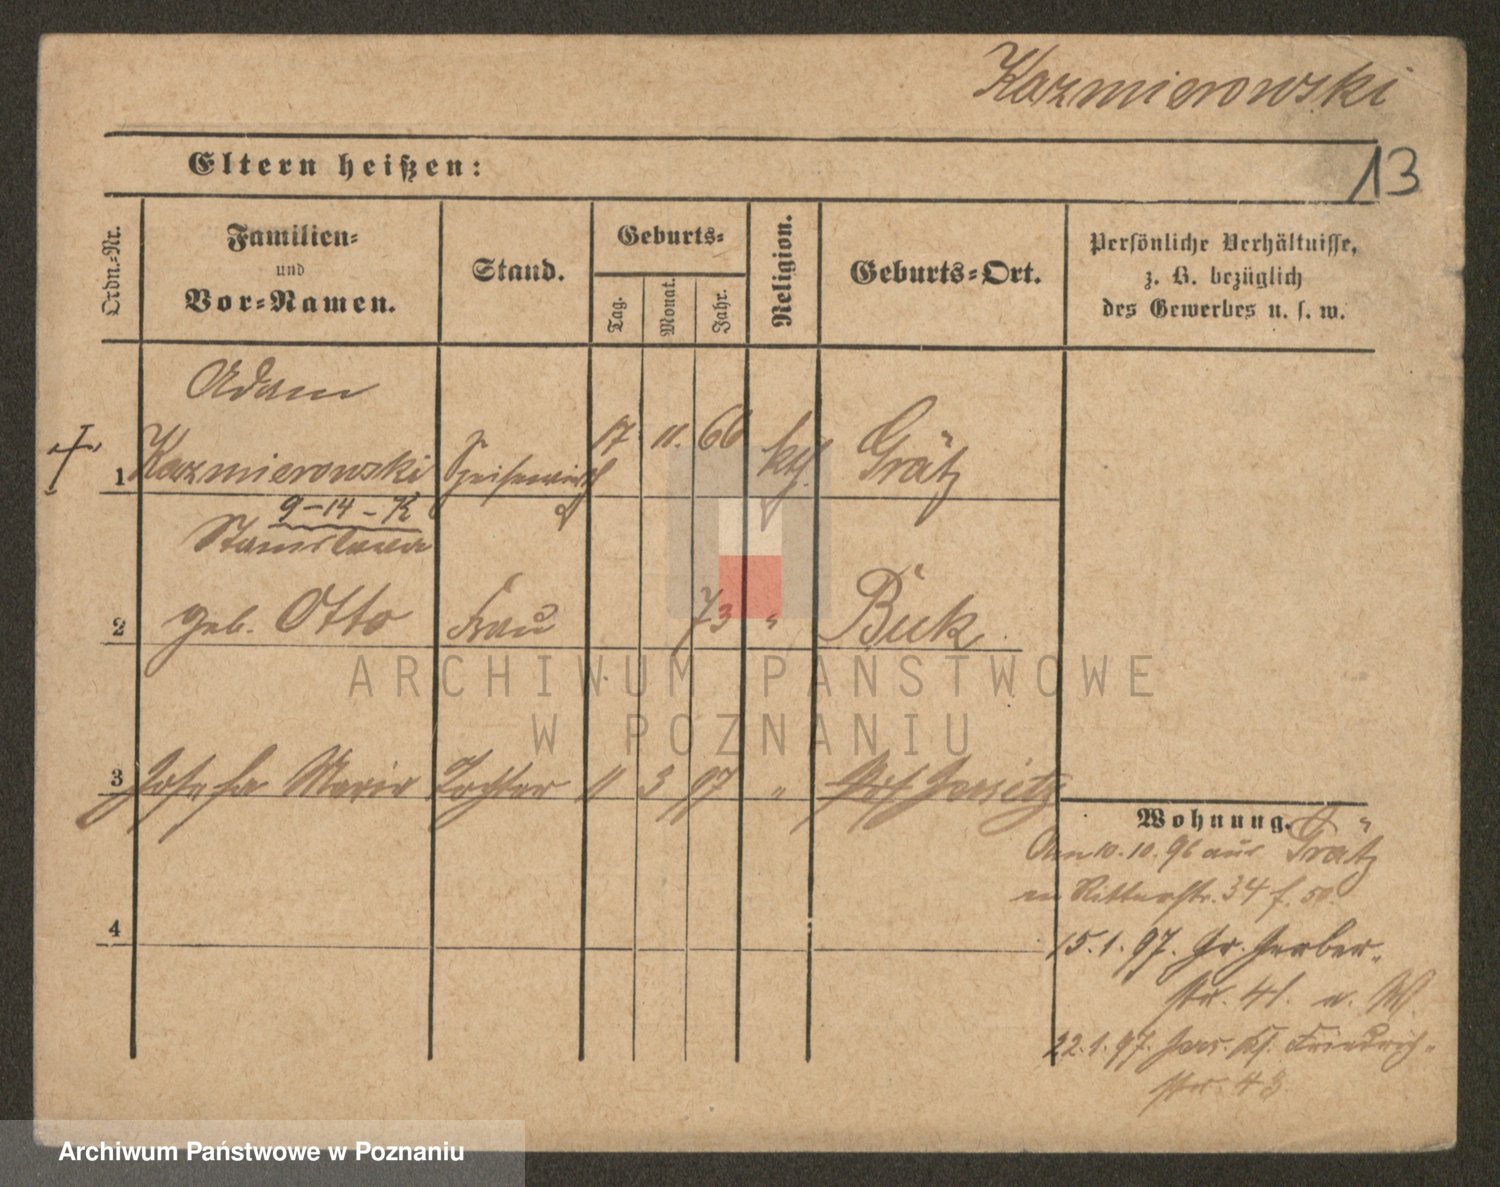 Kazmierowski
13
Eltern heißen:
Ordn.-Nr.
Familien-
und
Vor-Namen.
Stand.
Geburts-
Tag.
Monat.
Jahr.
Religion.
Geburts-Ort.
Persönliche Verhältnisse,
z. B. bezüglich
des Gewerbes u. s. w.
Adam
1 Kazmierowski Speisewirth 17 11. 66 kth. Grätz
9-14-K
Stanislawa
2 geb. Otto Frau 73 " Buk
3 Josefa Maria Tochter 11 3 97 " Jersitz
Wohnung.
10. 10. 96 aus Grätz
Ritterstr. 34
15. 1. 97. Gr. Gerber-
str. 41.
22. 1. 97. Jers. Friedrich-
str. 43
4
ARCHIWUM PAŃSTWOWE
W POZNANIU
Archiwum Państwowe w Poznaniu